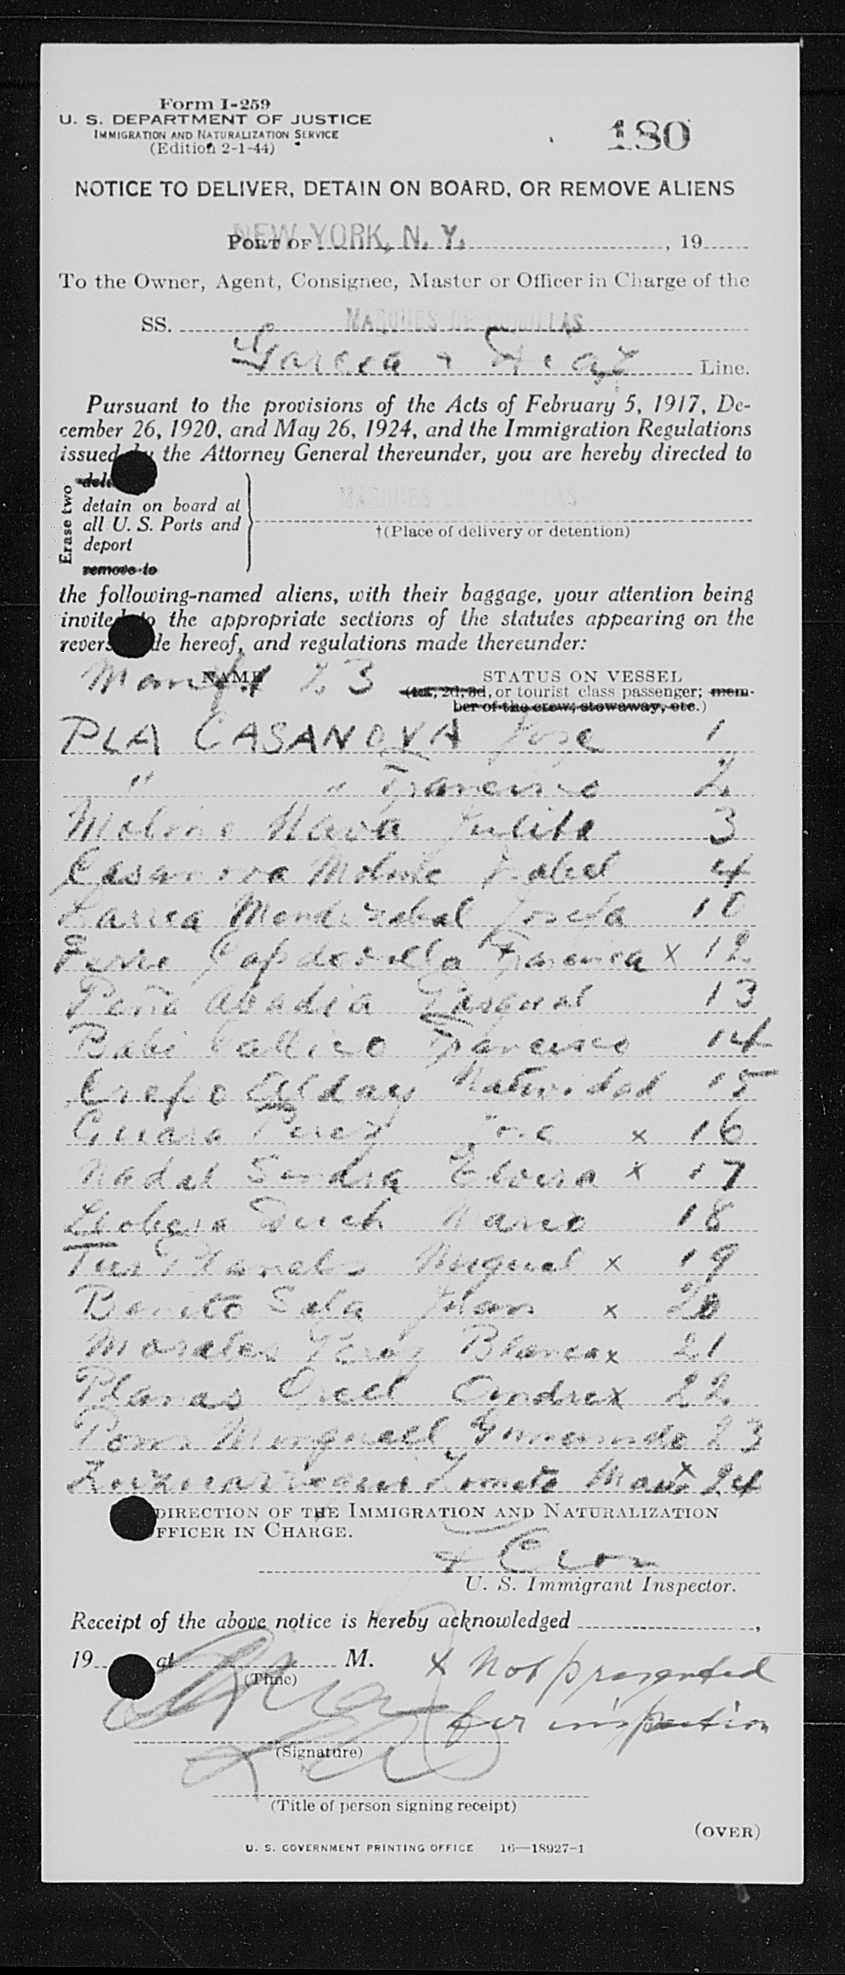 Form I-259
U. S. DEPARTMENT OF JUSTICE
IMMIGRATION AND NATURALIZATION SERVICE
(Edition 2-1-44)
180
NOTICE TO DELIVER, DETAIN ON BOARD, OR REMOVE ALIENS
PORT OF NEW YORK, N. Y. , 19
To the Owner, Agent, Consignee, Master or Officer in Charge of the
SS. MARQUES DE COMILLAS
Garcia & Diaz Line.
Pursuant to the provisions of the Acts of February 5, 1917, De-
cember 26, 1920, and May 26, 1924, and the Immigration Regulations
issued by the Attorney General thereunder, you are hereby directed to
Erase two
detain on board at
all U. S. Ports and
deport
remove to
MARQUES DE COMILLAS
†(Place of delivery or detention)
the following-named aliens, with their baggage, your attention being
invited to the appropriate sections of the statutes appearing on the
reverse side hereof, and regulations made thereunder:
Manif 23
NAME STATUS ON VESSEL
(1st, 2d, 3d, or tourist class passenger; mem-
ber of the crew; stowaway, etc.)
PLA CASANOVA Jose 1
" " Francisco 2
Moline Nava Julita 3
Casanova Moline Isabel 4
Larrea Mendizabal Josefa 10
Ferre Capdevilla Francisca x 12
Peña Abadia Pasqual 13
Francisco 14
Alday Natividad 15
Perez Jose x 16
Nadal Sendra Elvira x 17
Mario 18
Planels Miguel x 19
Benito Sala Juan x 20
Morales Perez Blanca x 21
Planas Andre x 22
Pons 23
x 24
DIRECTION OF THE IMMIGRATION AND NATURALIZATION
OFFICER IN CHARGE.
U. S. Immigrant Inspector.
Receipt of the above notice is hereby acknowledged ,
19 at M.
(Time)
x Not presented
for inspection
(Signature)
(Title of person signing receipt)
(OVER)
U. S. GOVERNMENT PRINTING OFFICE 16—18927-1